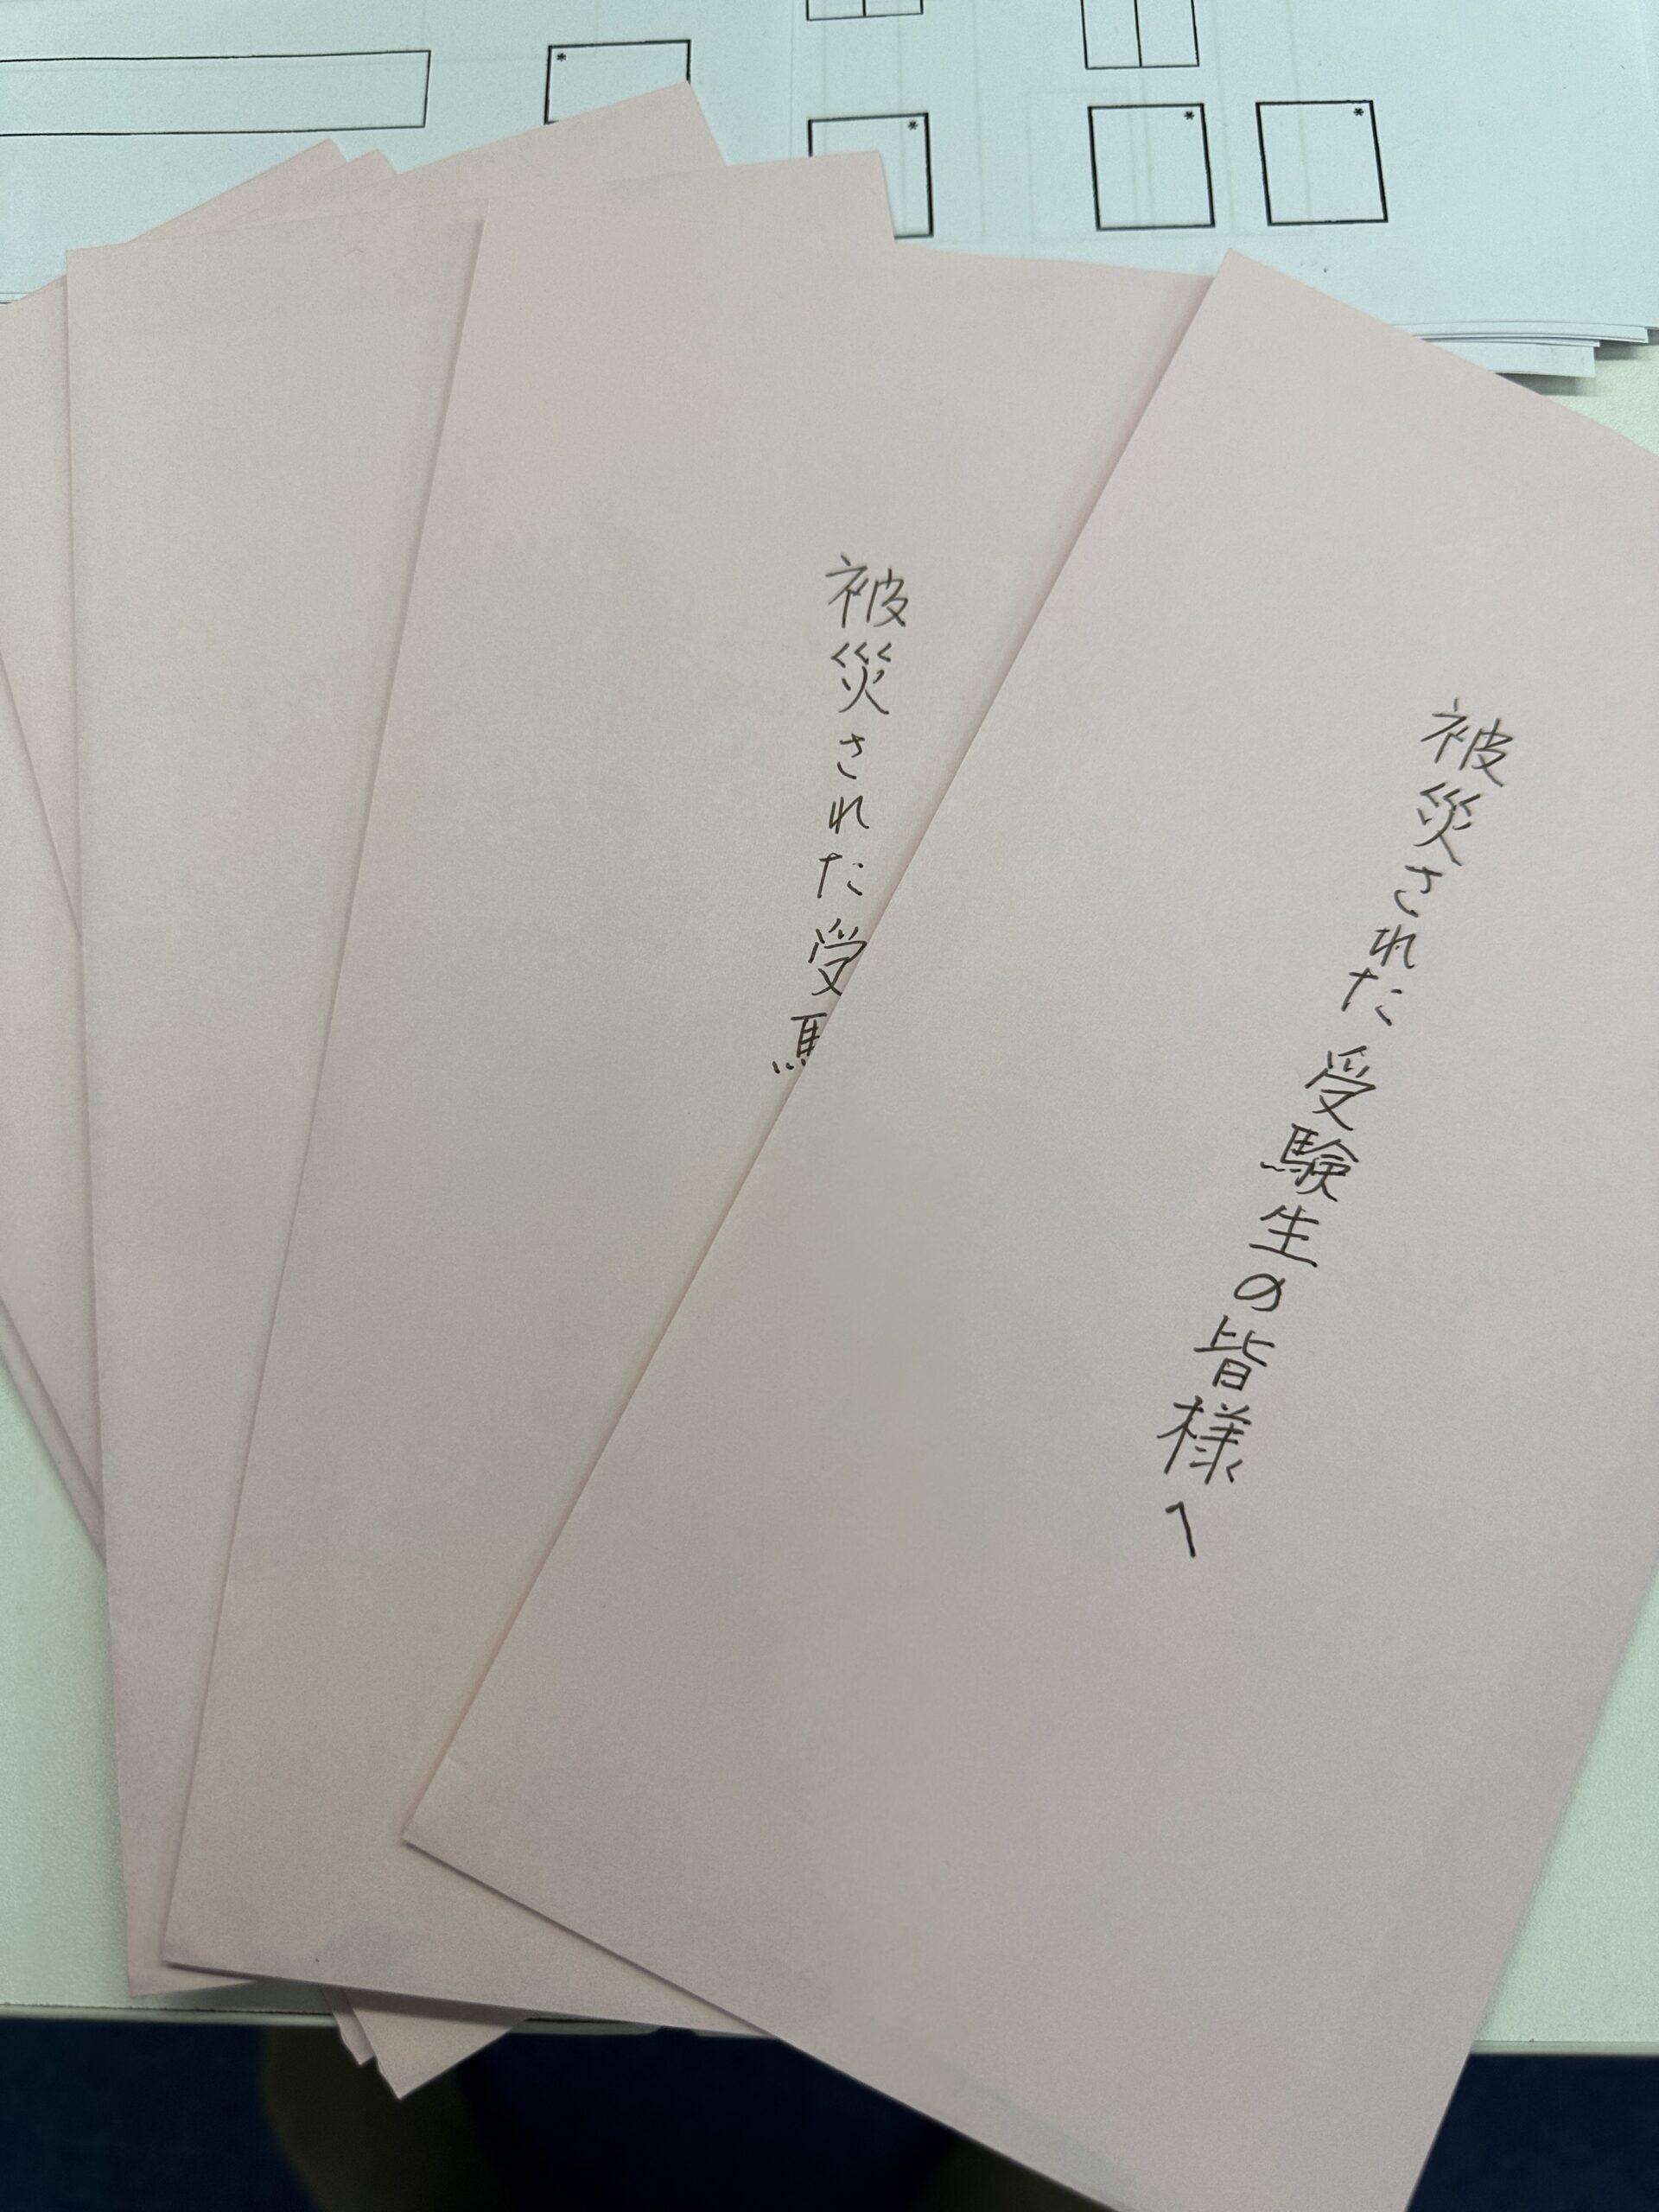 被災された受験生の皆様へ
被災された受
*
*
*
*